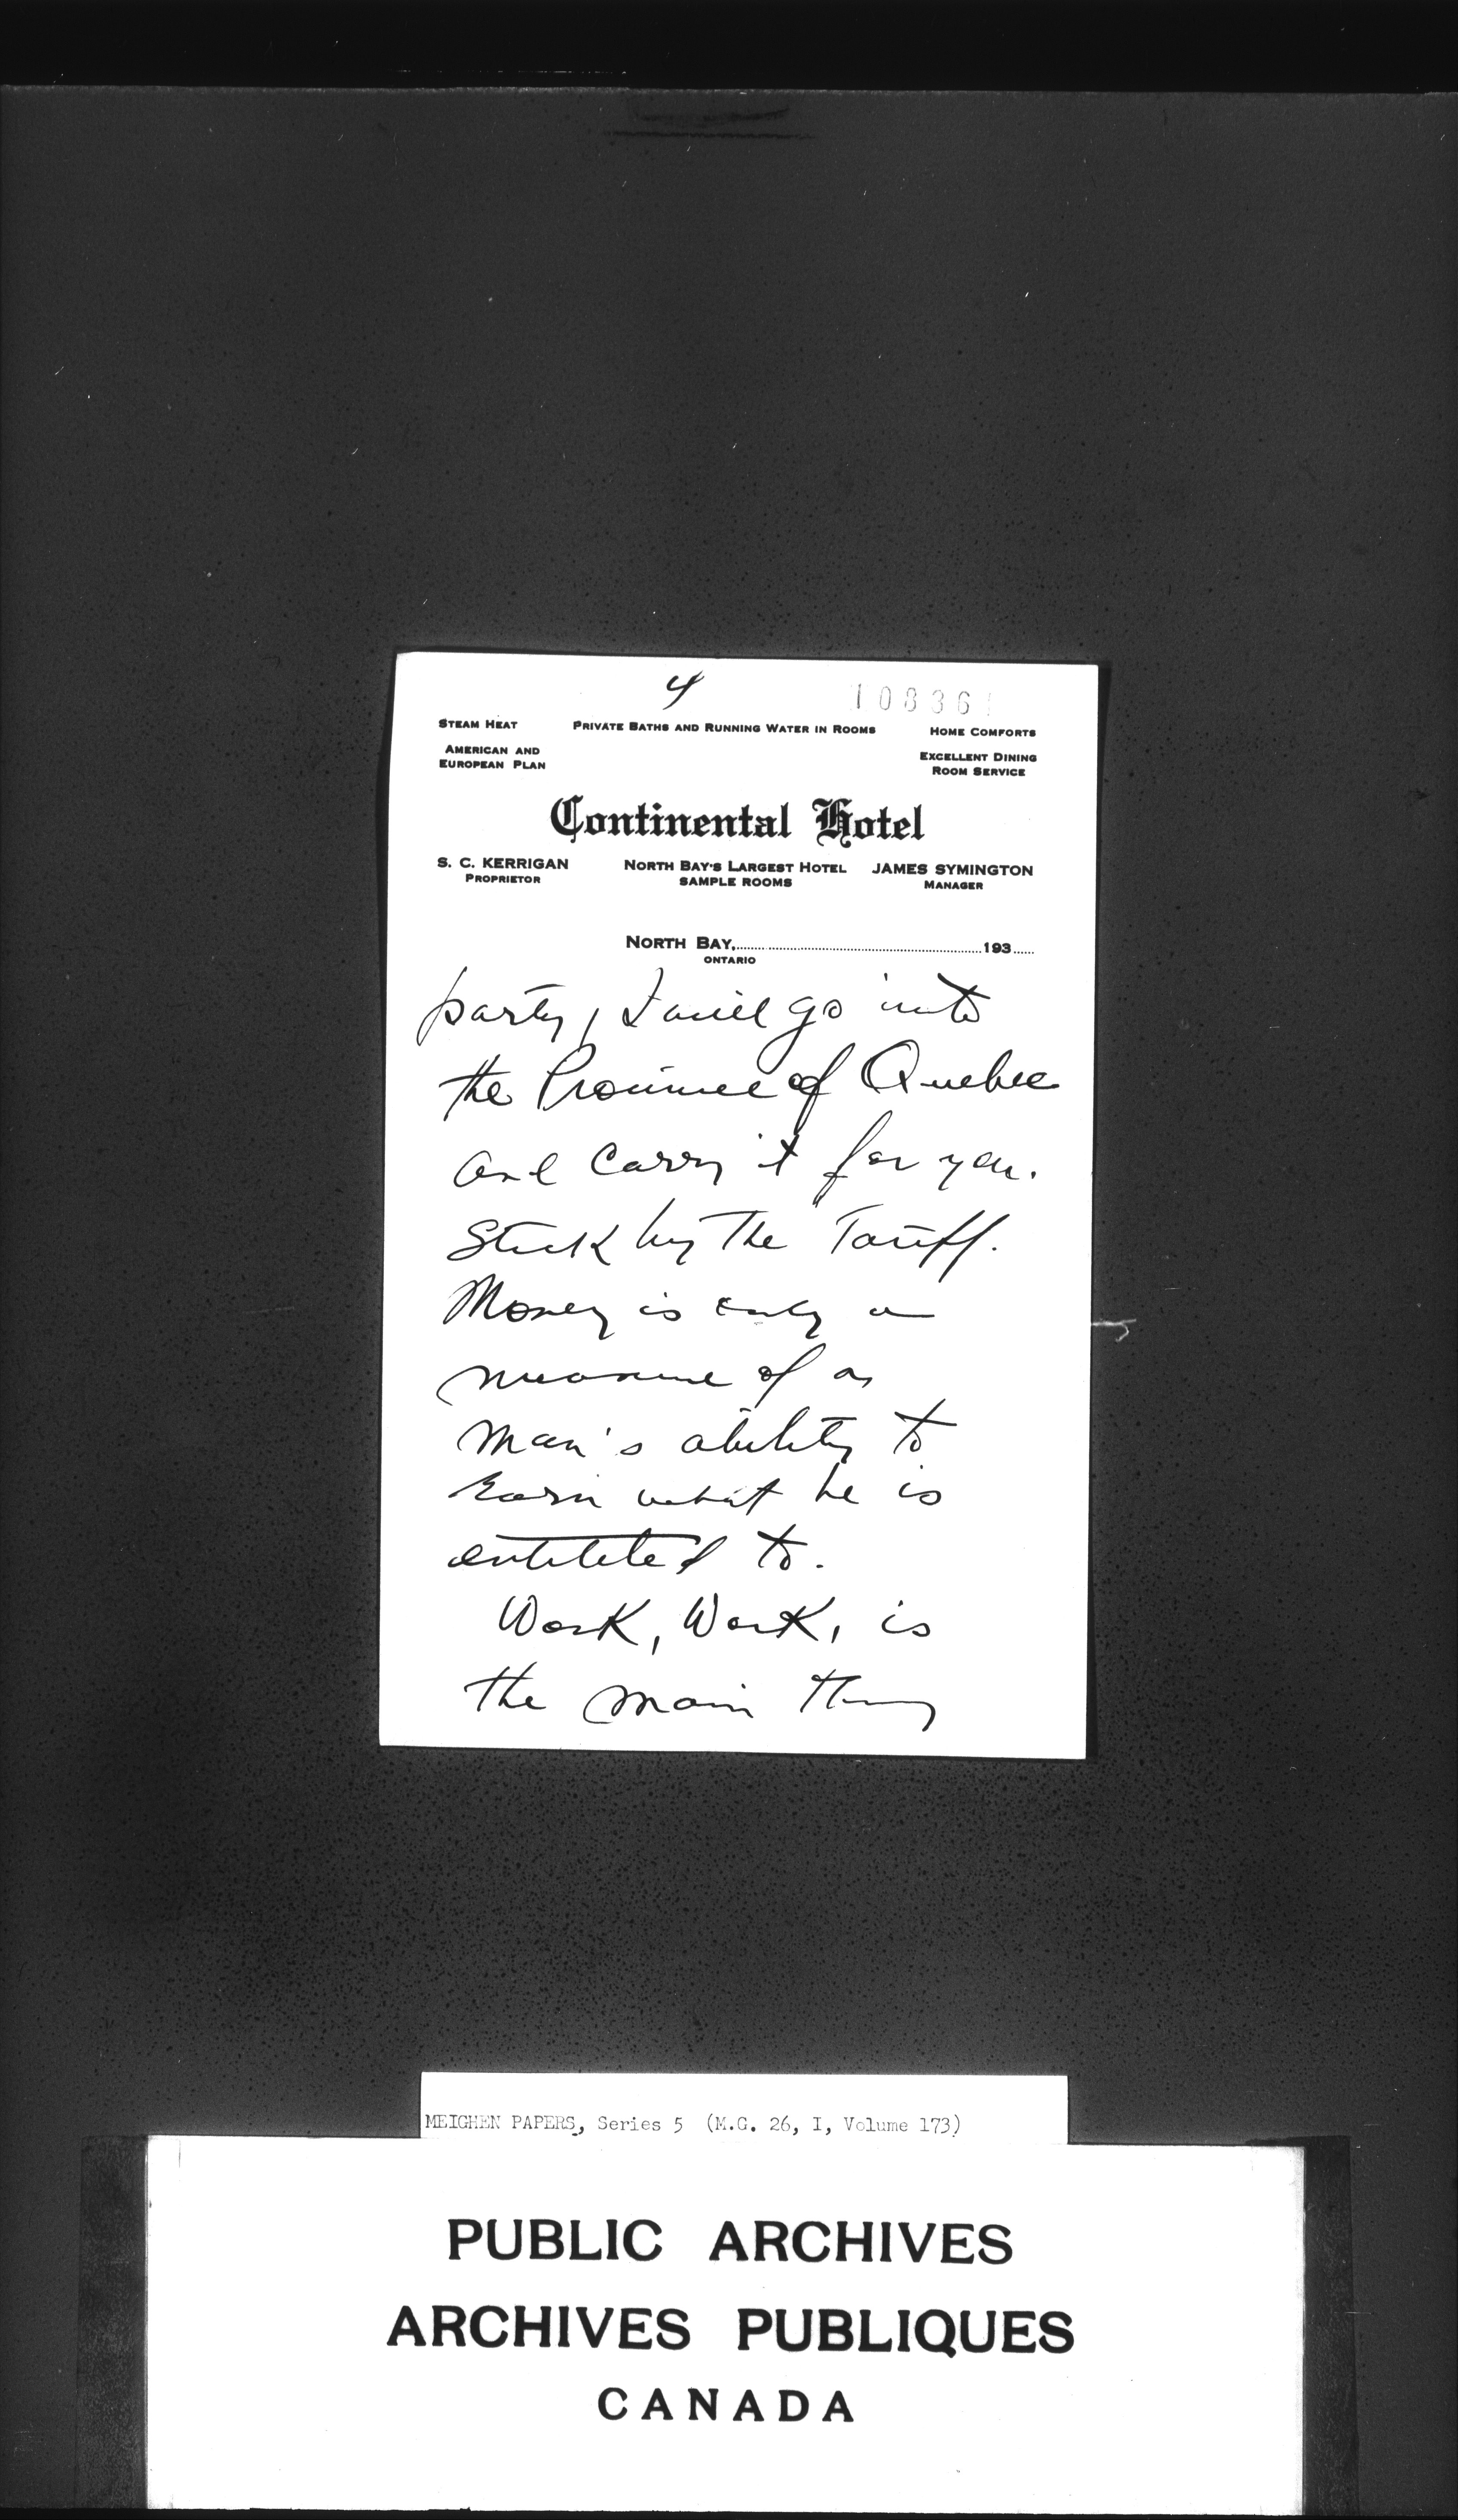 4
10836
STEAM HEAT PRIVATE BATHS AND RUNNING WATER IN ROOMS HOME COMFORTS
AMERICAN AND EUROPEAN PLAN
EXCELLENT DINING ROOM SERVICE
Continental Hotel
S. C. KERRIGAN PROPRIETOR
NORTH BAY'S LARGEST HOTEL SAMPLE ROOMS
JAMES SYMINGTON MANAGER
NORTH BAY, 193
ONTARIO
party, I will go into
the Province of Quebec
and carry it for you.
Stick by The Tariff.
Money is only a
measure of a
man's ability to
earn what he is
entitled to.
Work, Work, is
the main thing
MEIGHEN PAPERS, Series 5 (M.G. 26, I, Volume 173)
PUBLIC ARCHIVES
ARCHIVES PUBLIQUES
CANADA